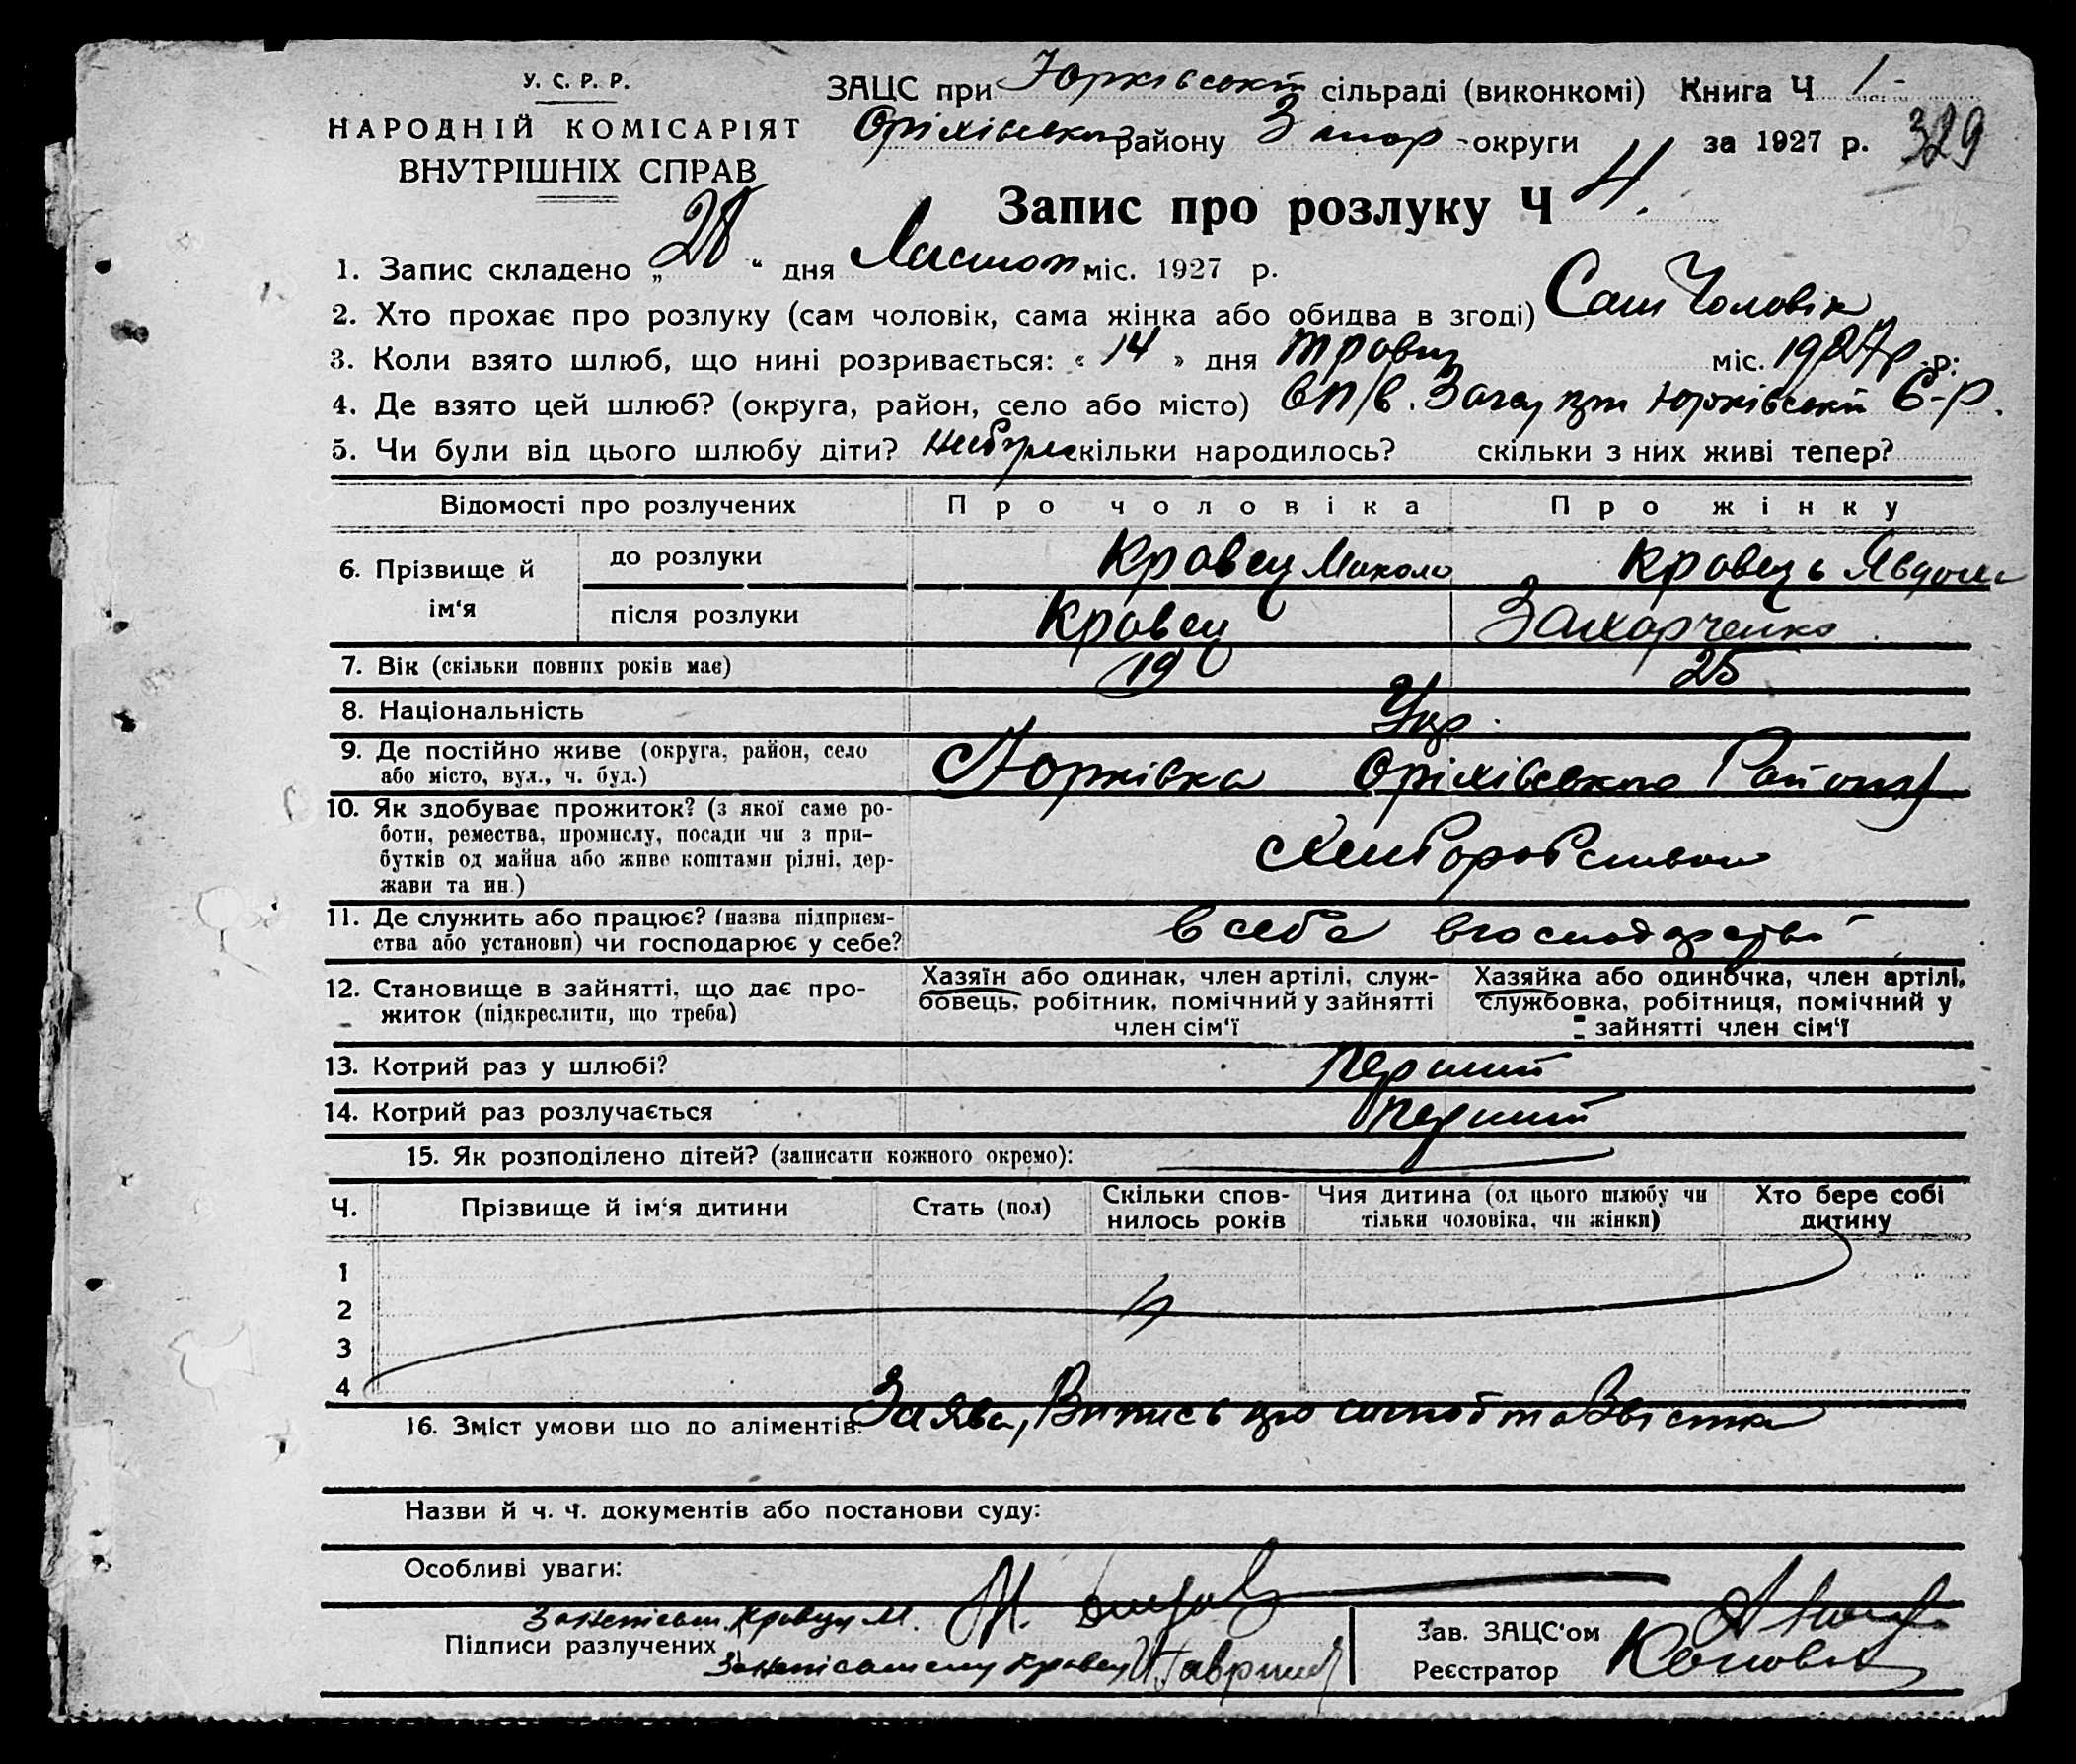 У. С. Р. Р.
НАРОДНІЙ КОМІСАРІЯТ
ВНУТРІШНІХ СПРАВ
ЗАЦС при Юрківській сільраді (виконкомі) Книга Ч 1
Оріхівського району Запор округи за 1927 р. 329
Запис про розлуку Ч 4.
1. Запис складено „28“ дня Листоп міс. 1927 р.
2. Хто прохає про розлуку (сам чоловік, сама жінка або обидва в згоді) Сам Чоловік
3. Коли взято шлюб, що нині розривається: «14» дня травня міс. 1927р р:
4. Де взято цей шлюб? (округа, район, село або місто) при Юрківській С-Р.
5. Чи були від цього шлюбу діти? небуло скільки народилось? скільки з них живі тепер?
Відомості про розлучених Про чоловіка Про жінку
6. Прізвище й ім‘я до розлуки Кравец Микола Кравець Явдоха
після розлуки Кравец Захарченко
7. Вік (скільки повних років має) 19 25
8. Національність Укр.
9. Де постійно живе (округа, район, село
або місто, вул., ч. буд.) Юрківка Оріхівського Району
10. Як здобуває прожиток? (з якої саме ро-
боти, ремества, промислу, посади чи з при-
бутків од майна або живе коштами рідні, дер-
жави та ин.) Хлиборобством
11. Де служить або працює? (назва підприєм-
ства або установи) чи господарює у себе? в себе в господарстві
12. Становище в зайнятті, що дає про-
житок (підкреслити, що треба)
Хазяїн або одинак, член артілі, служ-
бовець, робітник, помічний у зайнятті
член сім‘ї
Хазяйка або одиночка, член артілі,
службовка, робітниця, помічний у
зайнятті член сім‘ї
13. Котрий раз у шлюбі? перший
14. Котрий раз розлучається перший
15. Як розподілено дітей? (записати кожного окремо):
Ч. Прізвище й ім‘я дитини Стать (пол) Скільки спов-
нилось років Чия дитина (од цього шлюбу чи
тільки чоловіка, чи жінки) Хто бере собі
дитину
1
2
3
4
16. Зміст умови що до аліментів: Заява, Випись про шлюб та Звістка
Назви й ч. ч. документів або постанови суду:
Особливі уваги:
Кравця М.
Підписи разлучених
Кравец
Зав. ЗАЦС‘ом
Реєстратор